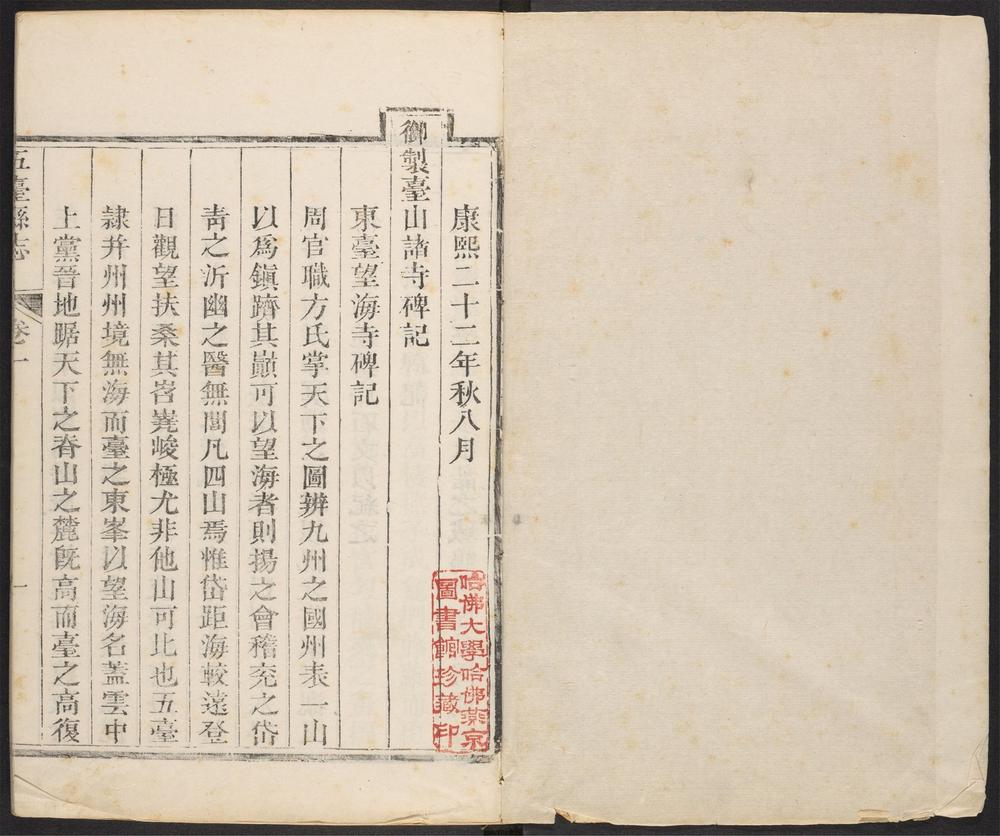 康熙二十二年秋八月
御製臺山諸寺碑記
東臺望海寺碑記
周官職方氏掌天下之圖辨九州之國州表一山
以爲鎭躋其巔可以望海者則揚之會稽兖之岱
靑之沂幽之醫無閭凡四山焉惟岱距海較遠登
日觀望扶桑其岧嶤峻極尤非他山可比也五臺
隷并州州境無海而臺之東峯以望海名蓋雲中
上黨晉地踞天下之脊山之麓旣高而臺之高復
五臺縣志
卷一
一
哈佛大學哈佛燕京
圖書館珍藏印